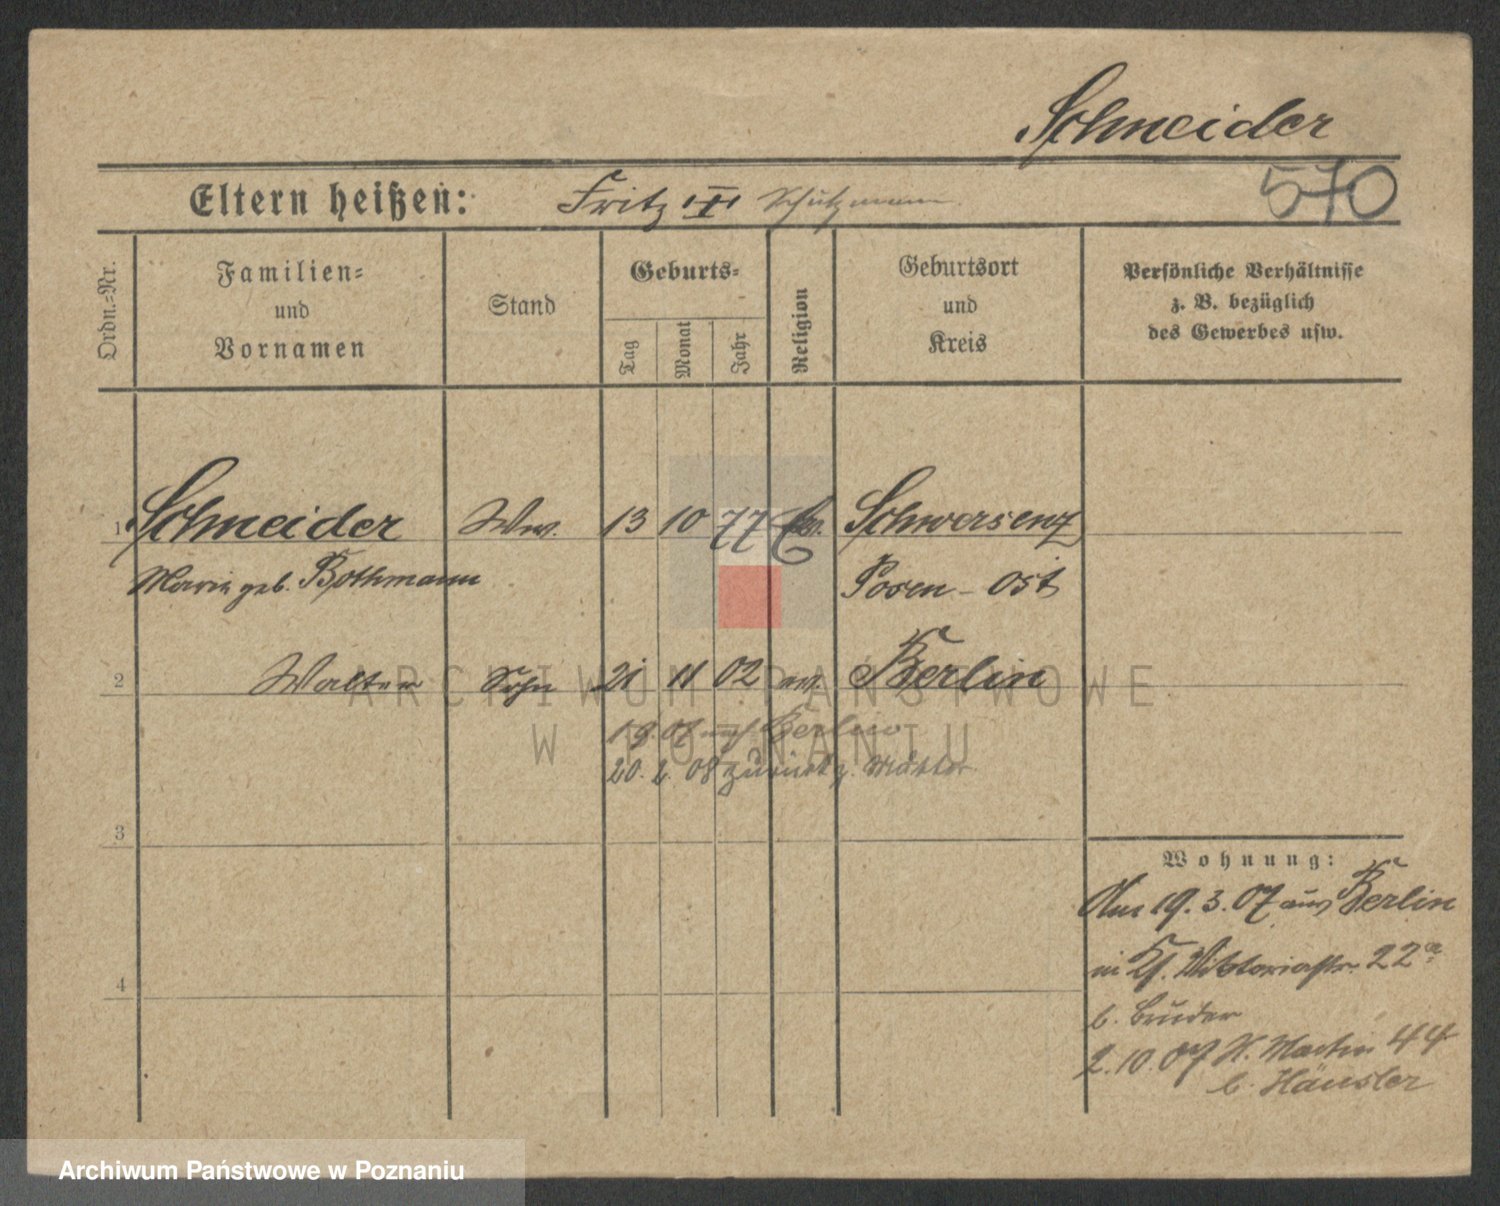 Schneider
570
Eltern heißen: Fritz † Schutzmann
Ordn.=Nr.
Familien=
und
Vornamen
Stand
Geburts=
Tag
Monat
Jahr
Religion
Geburtsort
und
Kreis
Persönliche Verhältnisse
z. B. bezüglich
des Gewerbes usw.
1 Schneider Ww. 13 10 77 Ev. Schwersenz
Marie geb. Bothmann Posen - Ost
2 Walter Sohn 21 11 02 ev. Berlin
19. 07 nach Berlin
20. 2. 08 zurück z. Mutter
3
4
Wohnung:
Am 19. 3. 07 aus Berlin
in Viktoriastr. 22a
b. Bruder
2. 10. 07 St. Martin 44
b. Häusler
ARCHIWUM PAŃSTWOWE
W POZNANIU
Archiwum Państwowe w Poznaniu